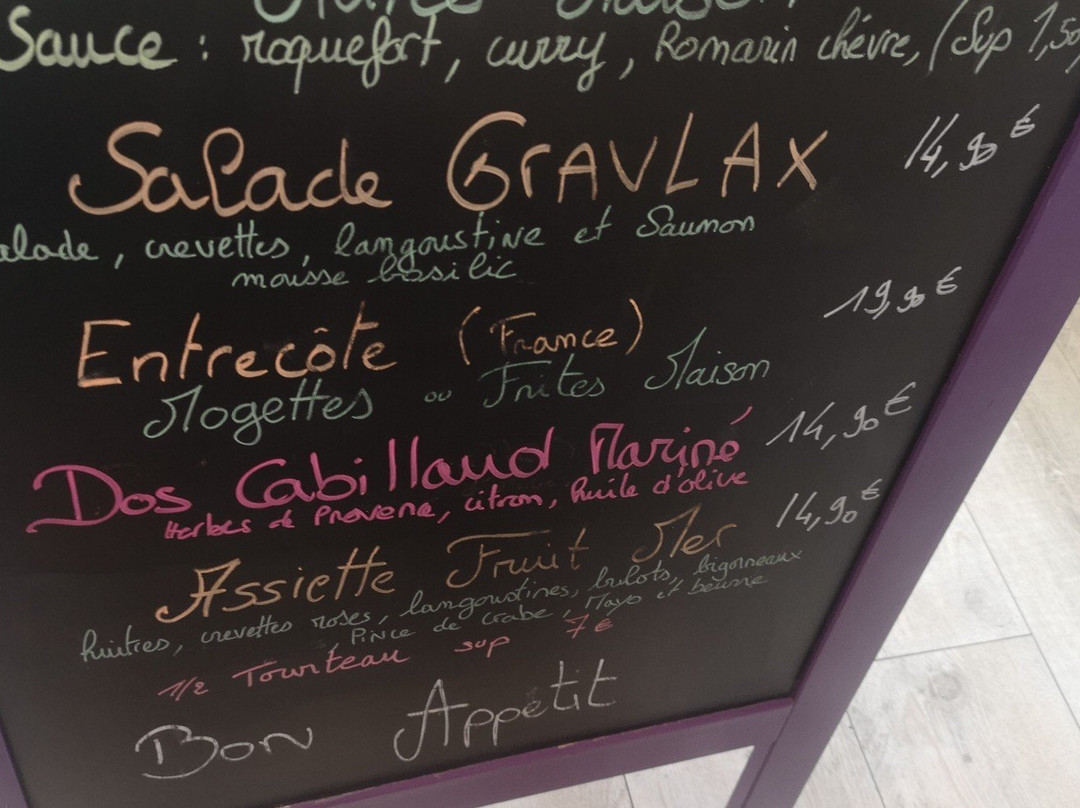 Sauce : roquefort, curry, Romarin chévre, (Sup 1,50
Salade GRAVLAX 14,90 €
alade, crevettes, langoustine et Saumon
mousse basilic
Entrecôte (France) 19,90 €
Mogettes ou Frites Maison
Dos Cabillaud Mariné 14,90 €
Herbes de Provene, citron, huile d'olive
Assiette Fruit Mer 14,90 €
huitres, crevettes roses, langoustines, bulots, bigorneaux
, Pince de crabe, Mayo et beurre
1/2 Tourteau sup 7 €
Bon Appétit